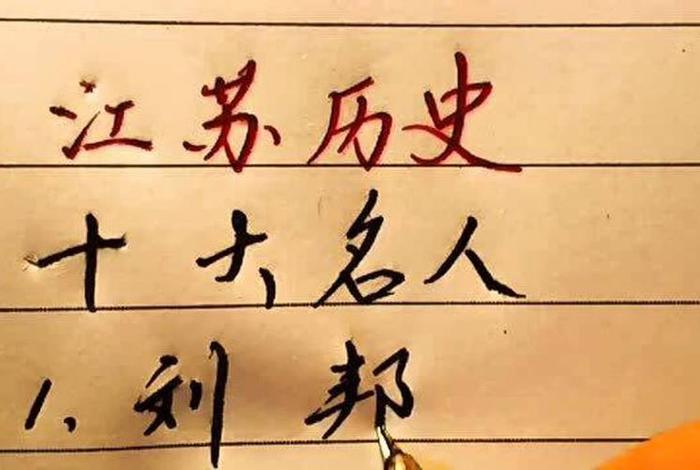 江苏历史
十大名人
1.刘邦